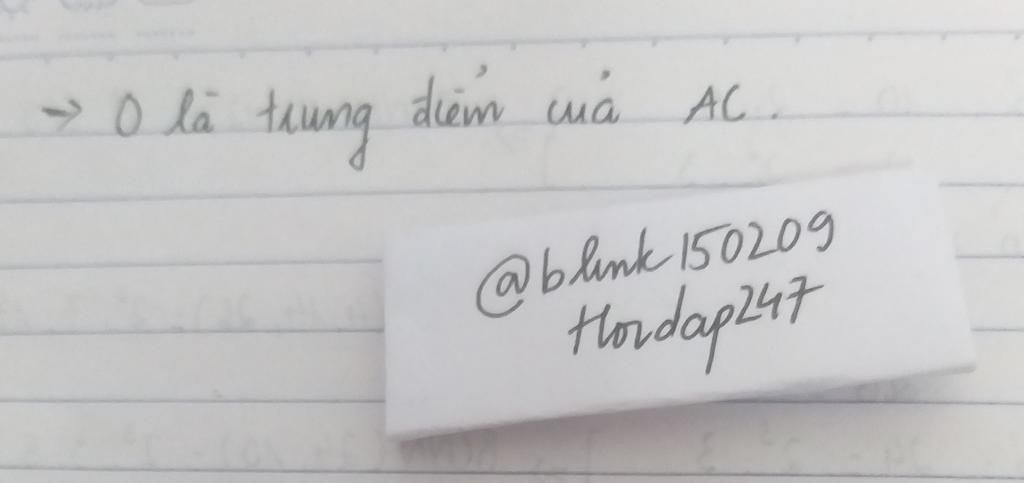 → O là trung điểm của AC.
@blink150209
Hoidap247